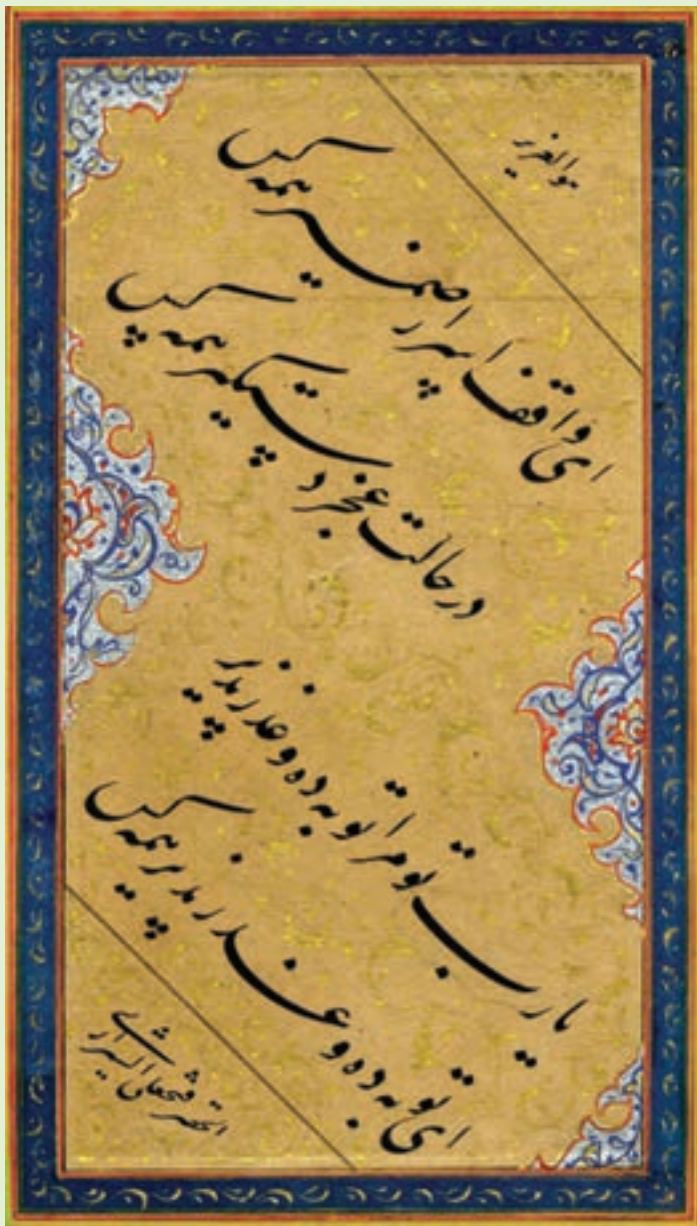 هو العزیز
ای واقف اسرار ضمیر همه کس
در حالت عجز دستگیر همه کس
یا رب تو مرا توبه ده و عذر پذیر
ای توبه ده و عذر پذیر همه کس
الشیرازی